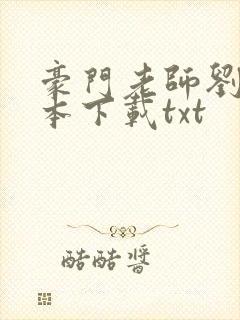 豪門老師劉
本下載txt
酷酷醬